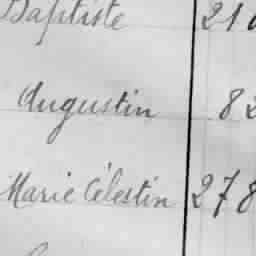 Baptiste 21
Augustin 82
Marie Célestin 278